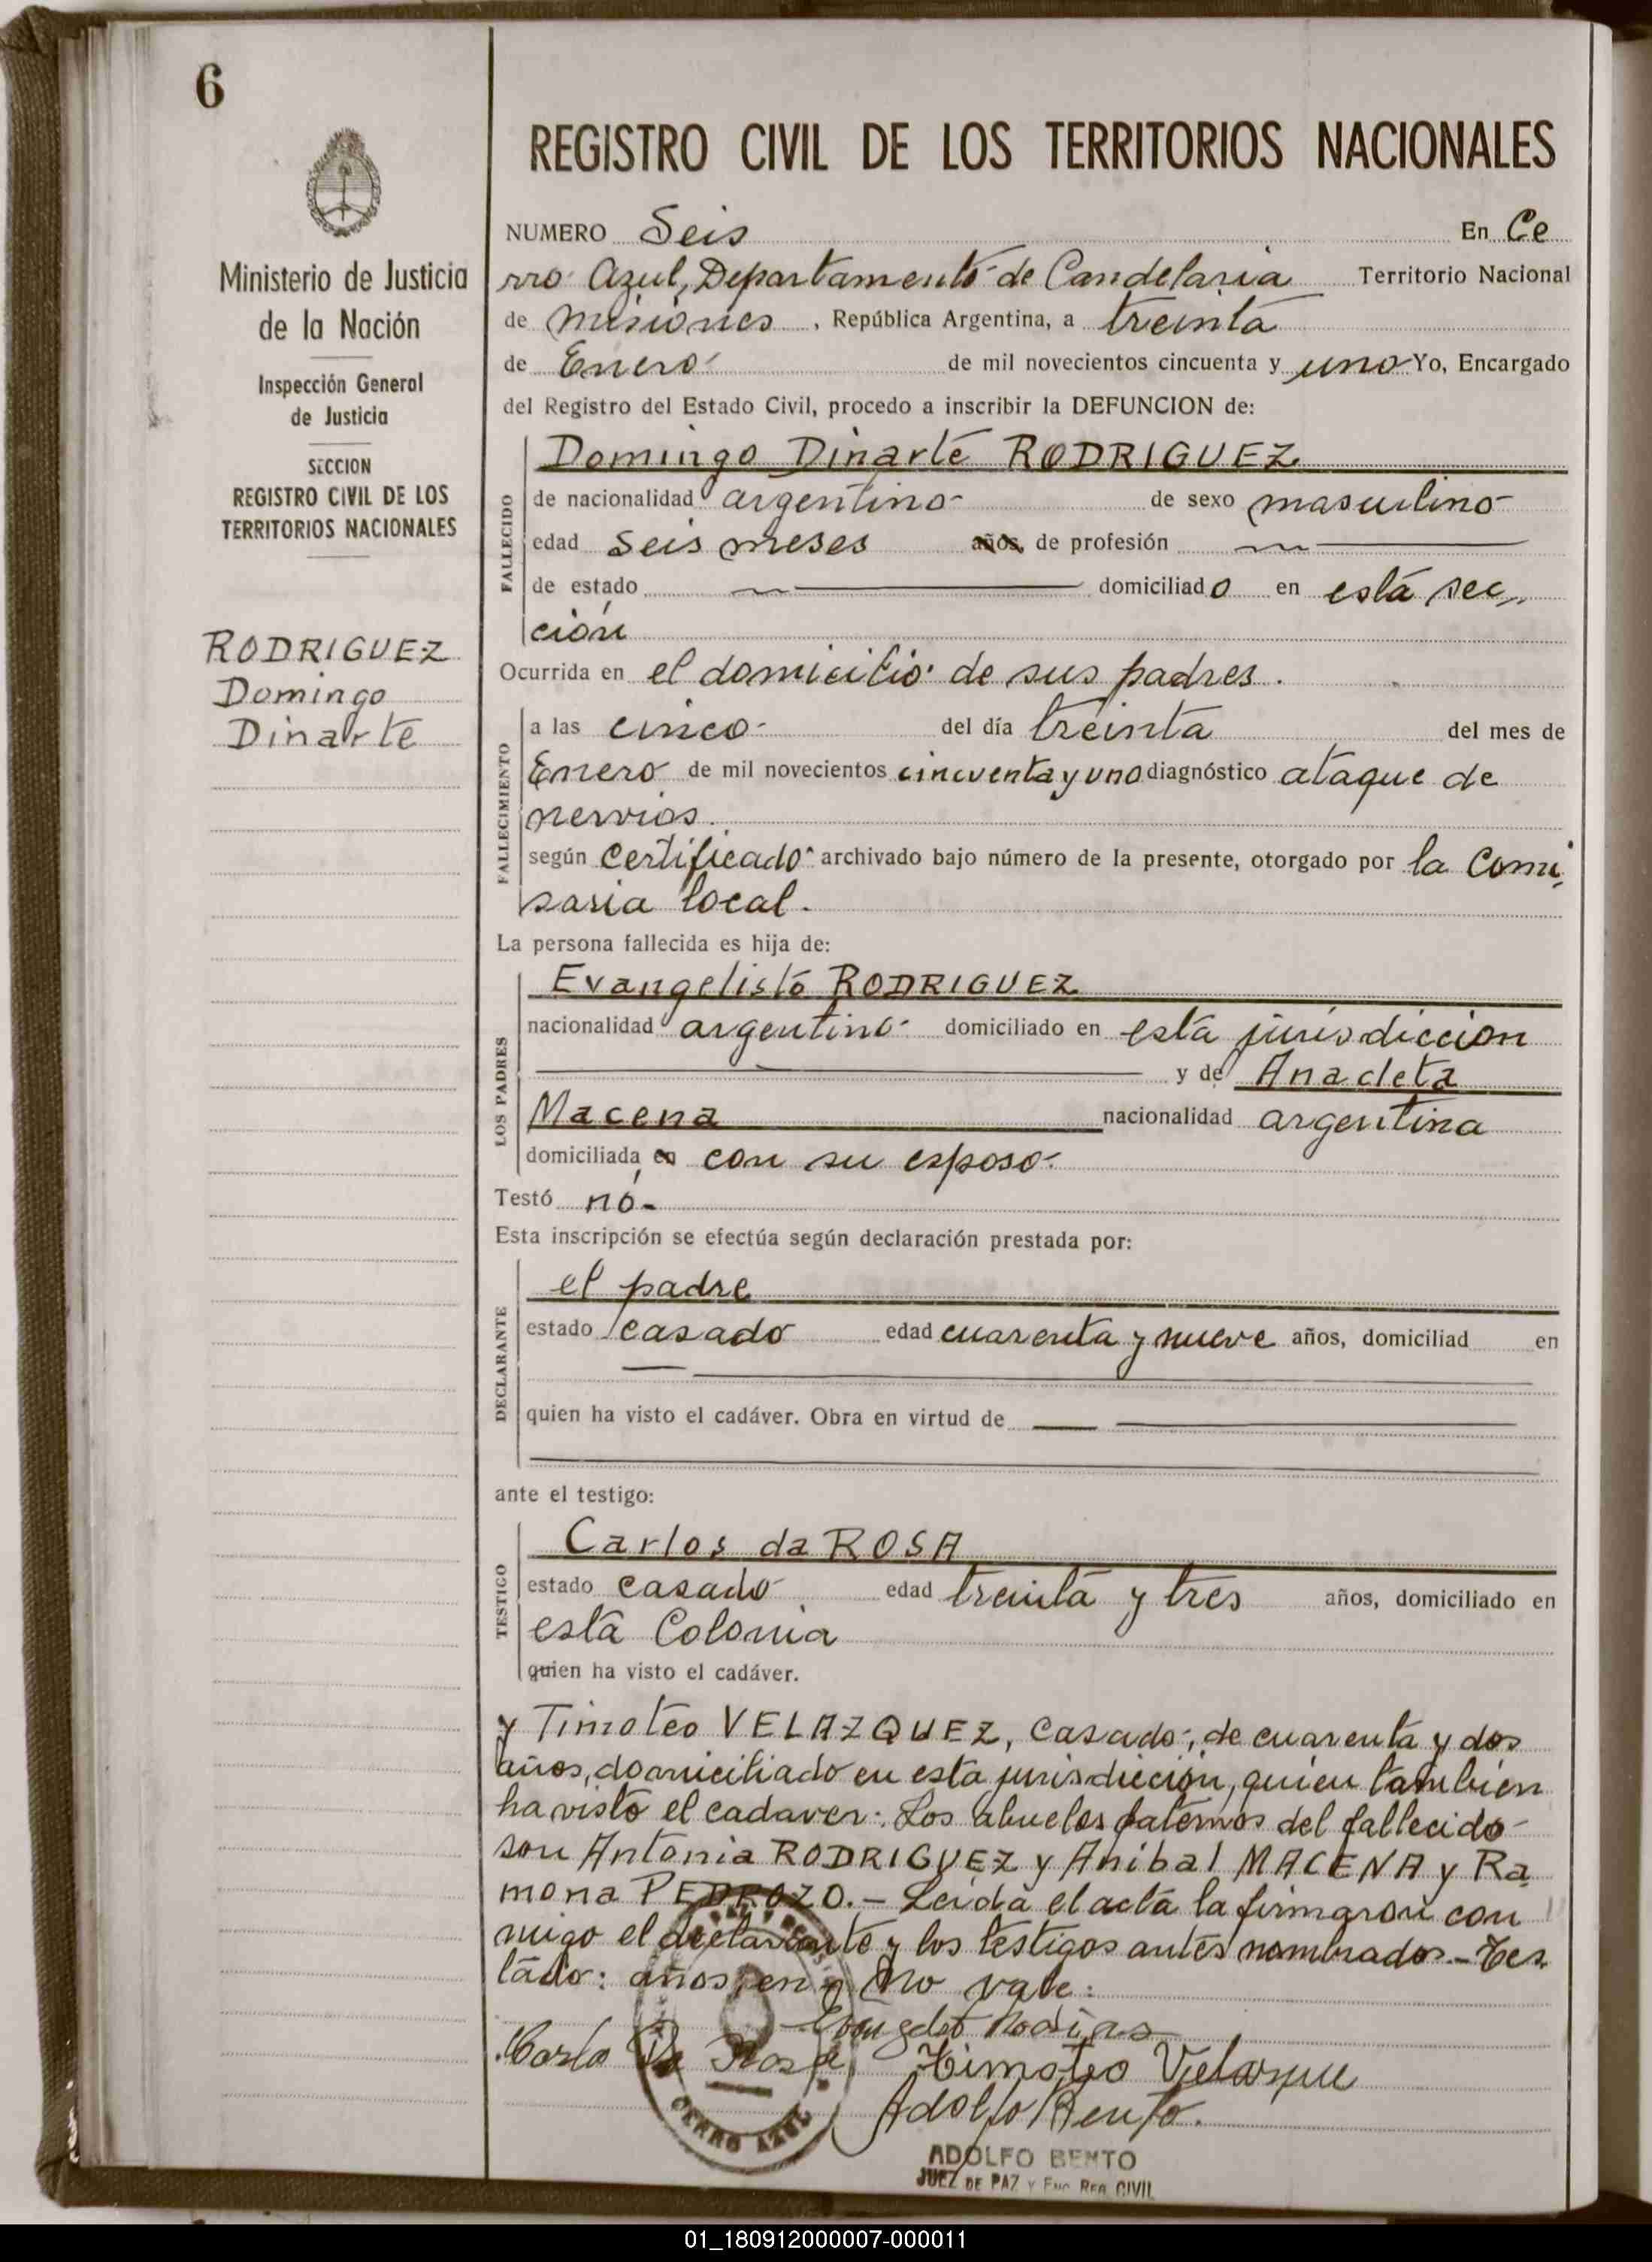 6
Ministerio de Justicia
de la Nación
Inspección General
de Justicia
SECCION
REGISTRO CIVIL DE LOS
TERRITORIOS NACIONALES
RODRIGUEZ
Domingo
Dinarte
REGISTRO CIVIL DE LOS TERRITORIOS NACIONALES
NUMERO Seis En Ce
rro Azul, Departamento de Candelaria Territorio Nacional
de Misiones, República Argentina, a treinta
de Enero de mil novecientos cincuenta y uno Yo, Encargado
del Registro del Estado Civil, procedo a inscribir la DEFUNCION de:
FALLECIDO
Domingo Dinarte RODRIGUEZ
de nacionalidad argentino de sexo masculino
edad seis meses años, de profesión
de estado domiciliado en esta sec
ción
Ocurrida en el domicilio de sus padres.
FALLECIMIENTO
a las cinco del día treinta del mes de
Enero de mil novecientos cincuenta y uno diagnóstico ataque de
nervios.
según certificado archivado bajo número de la presente, otorgado por la Comi
saria local.
La persona fallecida es hija de:
LOS PADRES
Evangelisto RODRIGUEZ
nacionalidad argentino domiciliado en esta jurisdiccion
y de Anacleta
Macena nacionalidad argentina
domiciliada en con su esposo.
Testó nó-
Esta inscripción se efectúa según declaración prestada por:
DECLARANTE
el padre
estado casado edad cuarenta y nueve años, domiciliad en
quien ha visto el cadáver. Obra en virtud de
ante el testigo:
TESTIGO
Carlos da ROSA
estado casado edad treinta y tres años, domiciliado en
esta Colonia
quien ha visto el cadáver.
y Timoteo VELAZQUEZ, casado, de cuarenta y dos
años, domiciliado en esta jurisdicción, quien tambien
ha visto el cadaver. Los abuelos paternos del fallecido
son Antonia RODRIGUEZ y Anibal MACENA y Ra
mona PEDROZO.- Leida el acta la firmaron con
migo el declarante y los testigos antes nombrados.- Tes
tado: años, en, No vale.
Carlo Da Rosa Timoteo
Adolfo Bento.
CERRO AZUL
ADOLFO BENTO
JUEZ DE PAZ Y Enc Reg. CIVIL
01_180912000007-000011